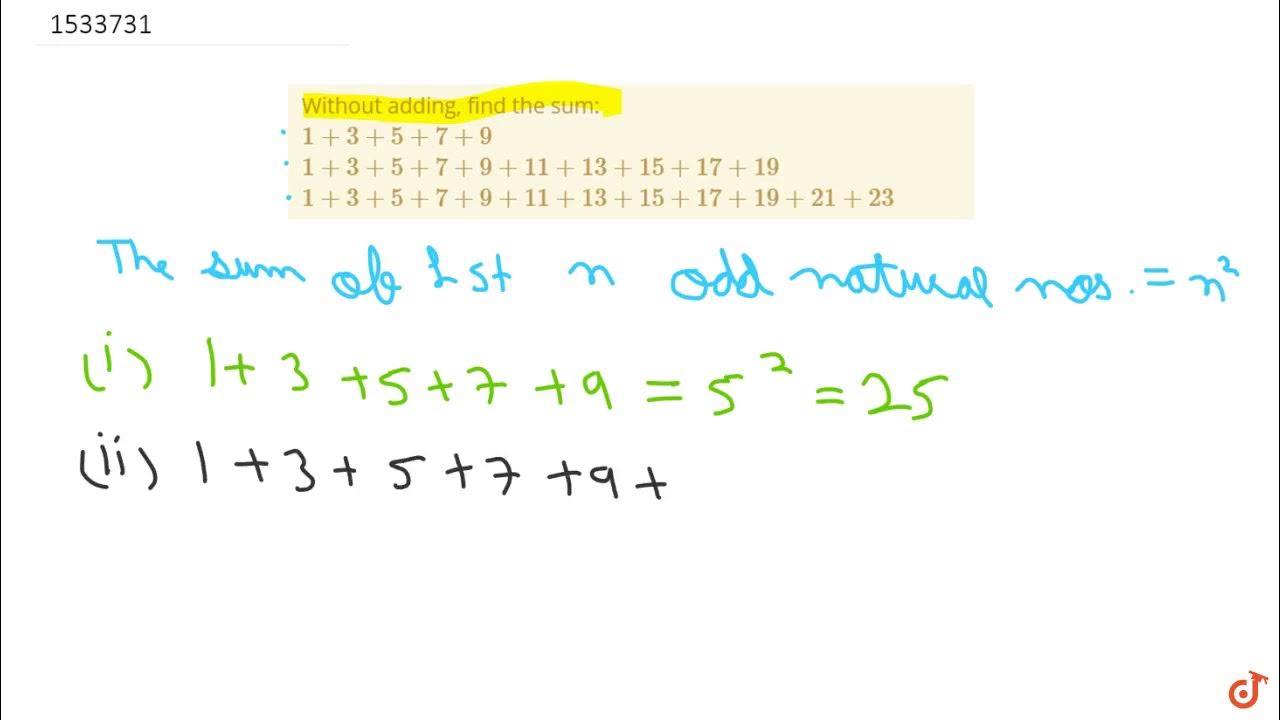 1533731
Without adding, find the sum:
1 + 3 + 5 + 7 + 9
1 + 3 + 5 + 7 + 9 + 11 + 13 + 15 + 17 + 19
1 + 3 + 5 + 7 + 9 + 11 + 13 + 15 + 17 + 19 + 21 + 23
The sum of 1st n odd natural nos. = n²
(i) 1 + 3 + 5 + 7 + 9 = 5² = 25
(ii) 1 + 3 + 5 + 7 + 9 +